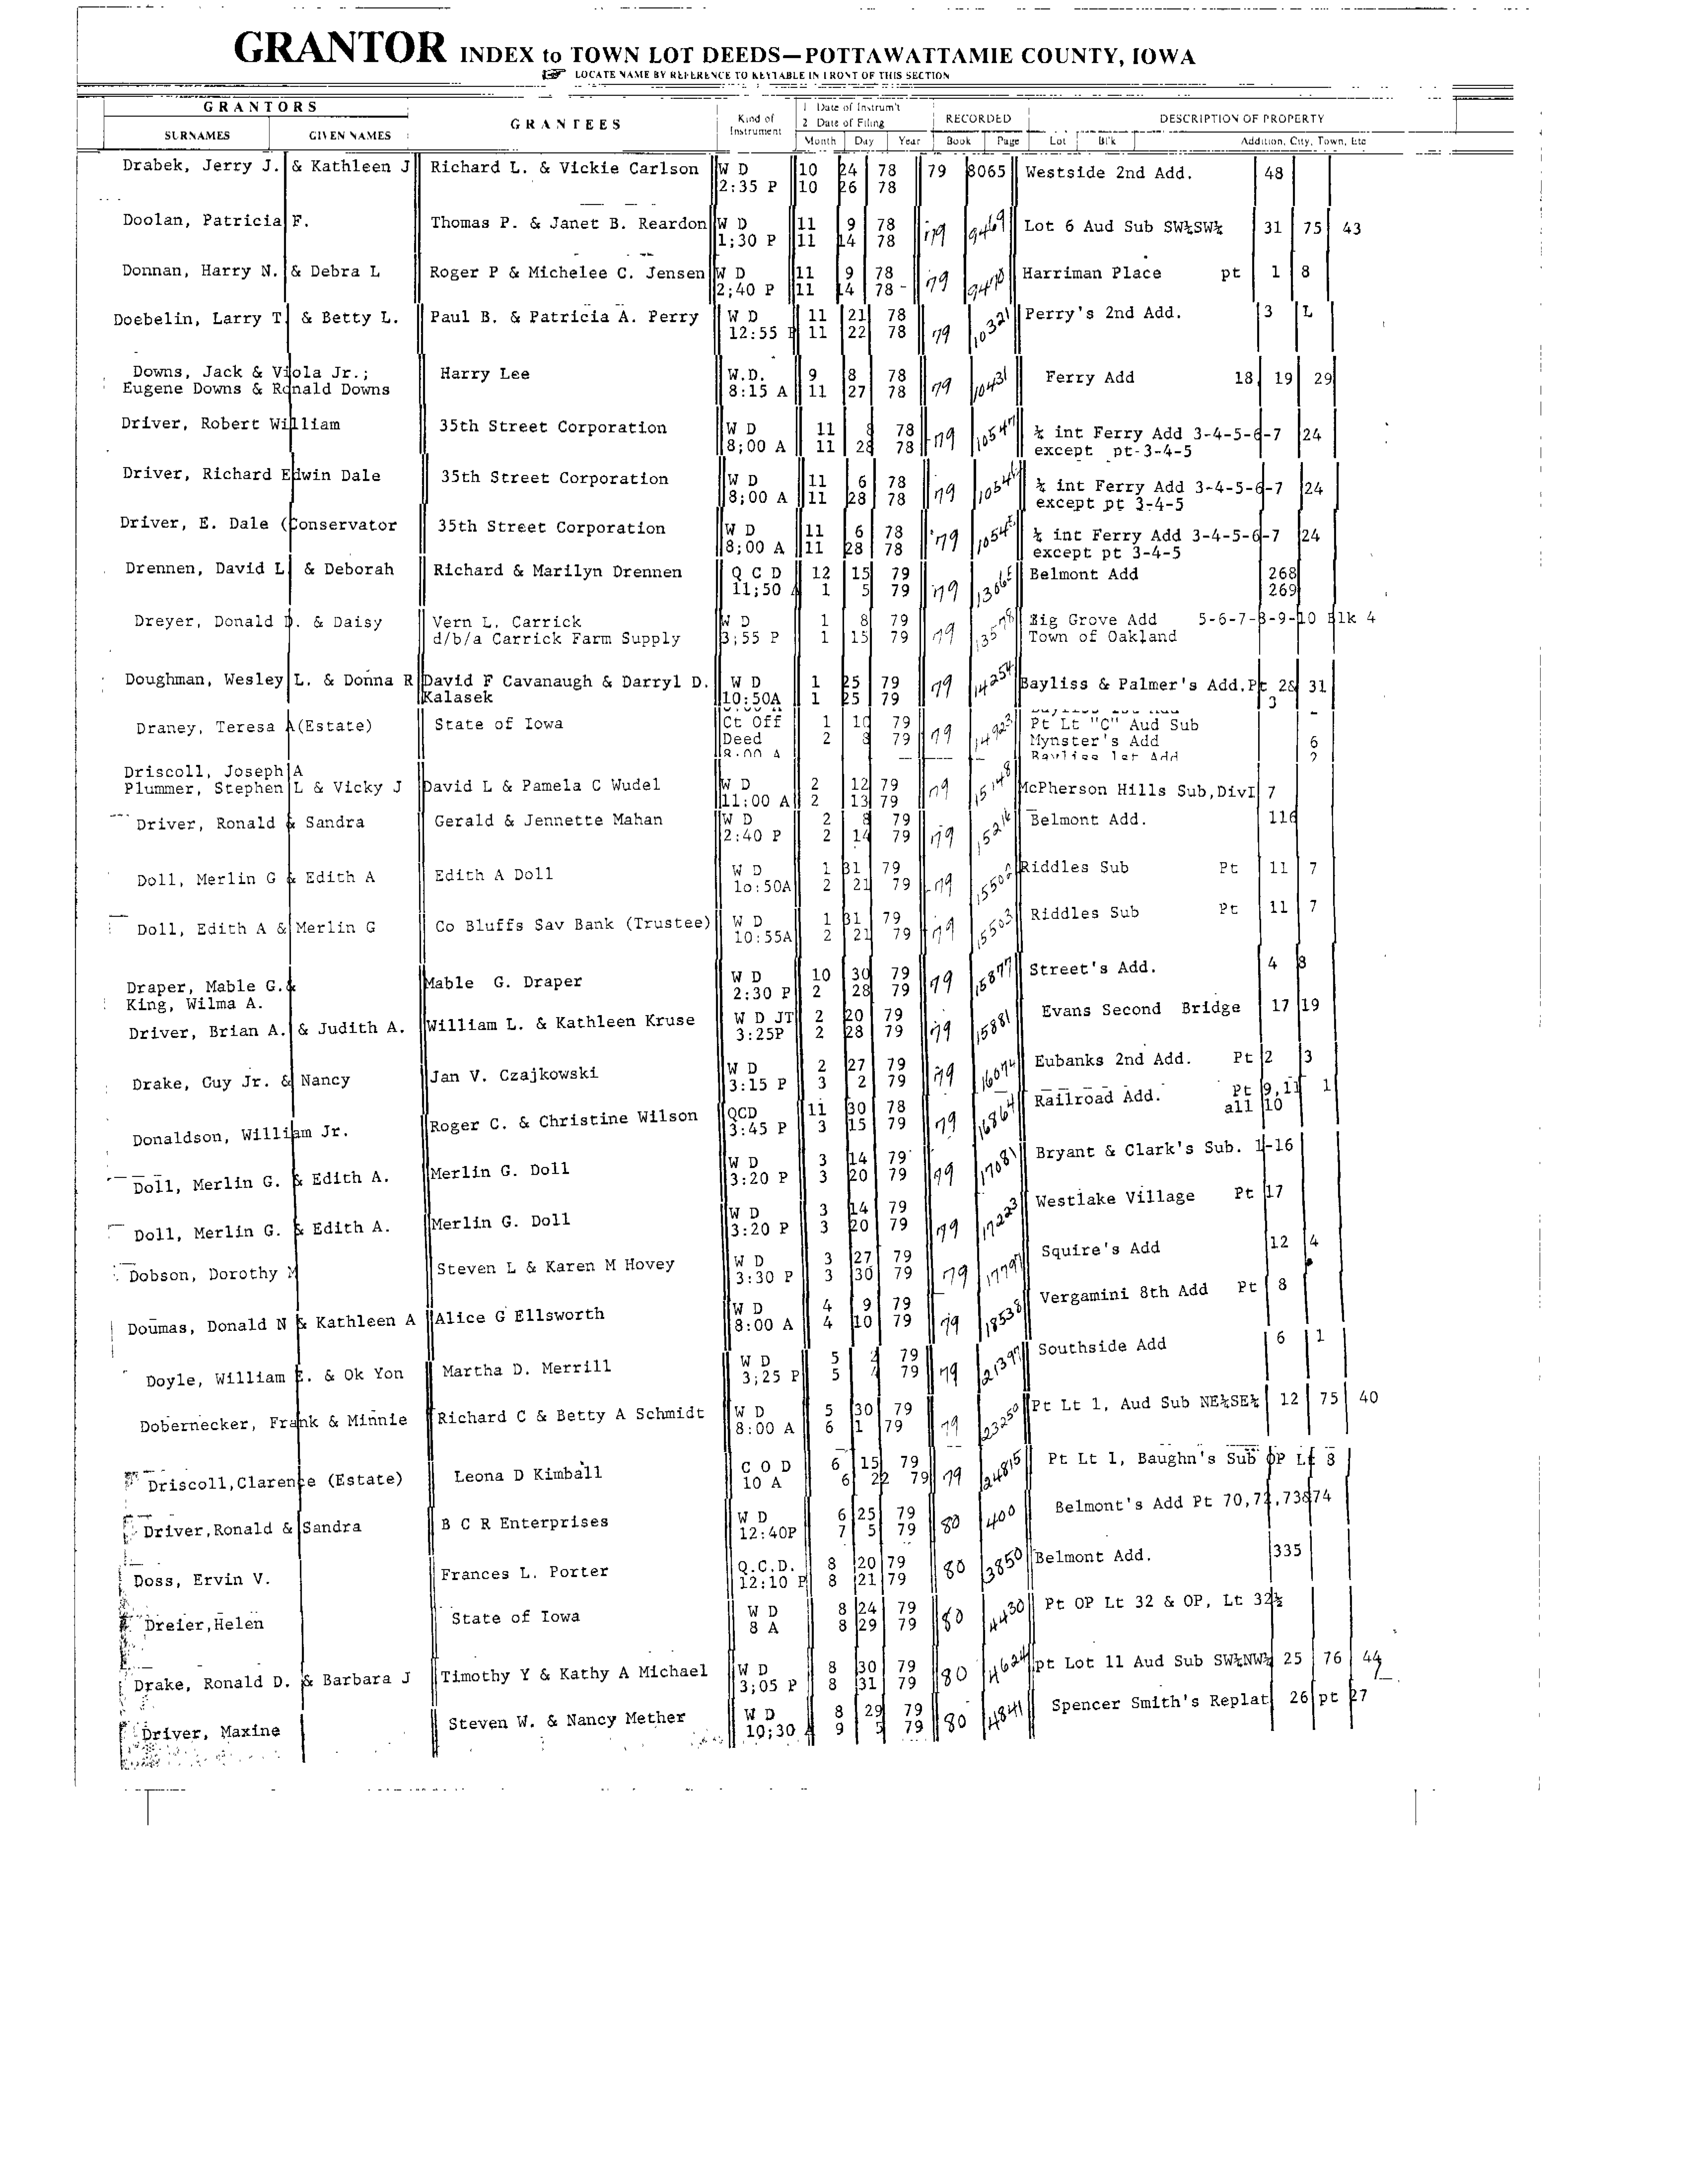 GRANTOR INDEX to TOWN LOT DEEDS—POTTAWATTAMIE COUNTY, IOWA
LOCATE NAME BY REFERENCE TO KEYTABLE IN FRONT OF THIS SECTION
GRANTORS GRANTEES Kind of Instrument 1 Date of Instrum't 2 Date of Filing RECORDED DESCRIPTION OF PROPERTY
SURNAMES GIVEN NAMES Month Day Year Book Page Lot Bl'k Addition, City, Town, Etc
Drabek, Jerry J. & Kathleen J Richard L. & Vickie Carlson W D 10 24 78 79 8065 Westside 2nd Add. 48
2:35 P 10 26 78
Doolan, Patricia F. Thomas P. & Janet B. Reardon W D 11 9 78 79 9469 Lot 6 Aud Sub SW¼SW¼ 31 75 43
1;30 P 11 14 78
Donnan, Harry N. & Debra L Roger P & Michelee C. Jensen W D 11 9 78 79 9470 Harriman Place pt 1 8
2;40 P 11 14 78
Doebelin, Larry T. & Betty L. Paul B. & Patricia A. Perry W D 11 21 78 79 10321 Perry's 2nd Add. 3 L
12:55 P 11 22 78
Downs, Jack & Viola Jr.; Harry Lee W.D. 9 8 78 79 10431 Ferry Add 18 19 29
Eugene Downs & Ronald Downs 8:15 A 11 27 78
Driver, Robert William 35th Street Corporation W D 11 8 78 79 10547 ¼ int Ferry Add 3-4-5-6-7 24
8;00 A 11 28 78 except pt-3-4-5
Driver, Richard Edwin Dale 35th Street Corporation W D 11 6 78 79 10546 ¼ int Ferry Add 3-4-5-6-7 24
8;00 A 11 28 78 except pt 3-4-5
Driver, E. Dale (Conservator 35th Street Corporation W D 11 6 78 79 10545 ¼ int Ferry Add 3-4-5-6-7 24
8;00 A 11 28 78 except pt 3-4-5
Drennen, David L & Deborah Richard & Marilyn Drennen Q C D 12 15 79 79 13065 Belmont Add 268
11;50 A 1 5 79 269
Dreyer, Donald D. & Daisy Vern L. Carrick W D 1 8 79 79 13578 Big Grove Add 5-6-7-8-9-10 Blk 4
d/b/a Carrick Farm Supply 3;55 P 1 15 79 Town of Oakland
Doughman, Wesley L. & Donna R David F Cavanaugh & Darryl D. W D 1 25 79 79 14254 Bayliss & Palmer's Add,Pt 2& 31
Kalasek 10:50A 1 25 79 3
Draney, Teresa A(Estate) State of Iowa Ct Off 1 10 79 79 14923 Pt Lt "C" Aud Sub
Deed 2 8 79 Mynster's Add 6
8:00 A Bayliss 1st Add 2
Driscoll, Joseph A
Plummer, Stephen L & Vicky J David L & Pamela C Wudel W D 2 12 79 79 15148 McPherson Hills Sub,DivI 7
11:00 A 2 13 79
Driver, Ronald & Sandra Gerald & Jennette Mahan W D 2 8 79 79 15216 Belmont Add. 116
2:40 P 2 14 79
Doll, Merlin G & Edith A Edith A Doll W D 1 31 79 79 15502 Riddles Sub Pt 11 7
1o:50A 2 21 79
Doll, Edith A & Merlin G Co Bluffs Sav Bank (Trustee) W D 1 31 79 79 15503 Riddles Sub Pt 11 7
10:55A 2 21 79
Draper, Mable G.& Mable G. Draper W D 10 30 79 79 15877 Street's Add. 4 8
King, Wilma A. 2:30 P 2 28 79
Driver, Brian A. & Judith A. William L. & Kathleen Kruse W D JT 2 20 79 79 15881 Evans Second Bridge 17 19
3:25P 2 28 79
Drake, Guy Jr. & Nancy Jan V. Czajkowski W D 2 27 79 79 16074 Eubanks 2nd Add. Pt 2 3
3:15 P 3 2 79
Donaldson, William Jr. Roger C. & Christine Wilson QCD 11 30 78 79 16864 Railroad Add. Pt 9,11 1
3:45 P 3 15 79 all 10
Doll, Merlin G. & Edith A. Merlin G. Doll W D 3 14 79 79 17081 Bryant & Clark's Sub. 1-16
3:20 P 3 20 79
Doll, Merlin G. & Edith A. Merlin G. Doll W D 3 14 79 79 17223 Westlake Village Pt 17
3:20 P 3 20 79
Dobson, Dorothy M Steven L & Karen M Hovey W D 3 27 79 79 17797 Squire's Add 12 4
3:30 P 3 30 79
Doumas, Donald N & Kathleen A Alice G Ellsworth W D 4 9 79 79 18538 Vergamini 8th Add Pt 8
8:00 A 4 10 79
Doyle, William E. & Ok Yon Martha D. Merrill W D 5 2 79 79 21397 Southside Add 6 1
3;25 P 5 79
Dobernecker, Frank & Minnie Richard C & Betty A Schmidt W D 5 30 79 79 23250 Pt Lt 1, Aud Sub NE¼SE¼ 12 75 40
8:00 A 6 1 79
Driscoll,Clarence (Estate) Leona D Kimball C O D 6 15 79 79 24815 Pt Lt 1, Baughn's Sub OP Lt 8
10 A 6 22 79
Driver,Ronald & Sandra B C R Enterprises W D 6 25 79 80 400 Belmont's Add Pt 70,72,73&74
12:40P 7 5 79
Doss, Ervin V. Frances L. Porter Q.C.D. 8 20 79 80 3850 Belmont Add. 335
12:10 P 8 21 79
Dreier,Helen State of Iowa W D 8 24 79 80 4430 Pt OP Lt 32 & OP, Lt 32½
8 A 8 29 79
Drake, Ronald D. & Barbara J Timothy Y & Kathy A Michael W D 8 30 79 80 4624 pt Lot 11 Aud Sub SW¼NW¼ 25 76 44
3;05 P 8 31 79
Driver, Maxine Steven W. & Nancy Mether W D 8 29 79 80 4841 Spencer Smith's Replat 26 pt 27
10;30 A 9 5 79